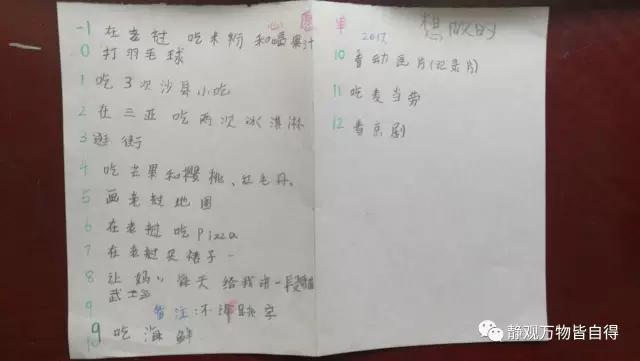 心愿单 2017 想做的
-1 在老挝 吃米粉和喝果汁
0 打羽毛球
1 吃3次沙县小吃
2 在三亚吃两次冰淇淋
3 逛街
4 吃芒果和樱桃、红毛丹。
5 画老挝地图
6 在老挝吃Pizza
7 在老挝买裙子
8 让妈妈每天给我讲一
武士
9 备注:不 字
9 吃海鲜
10 看动画片(记录片)
11 吃麦当劳
12 看京剧
静观万物皆自得